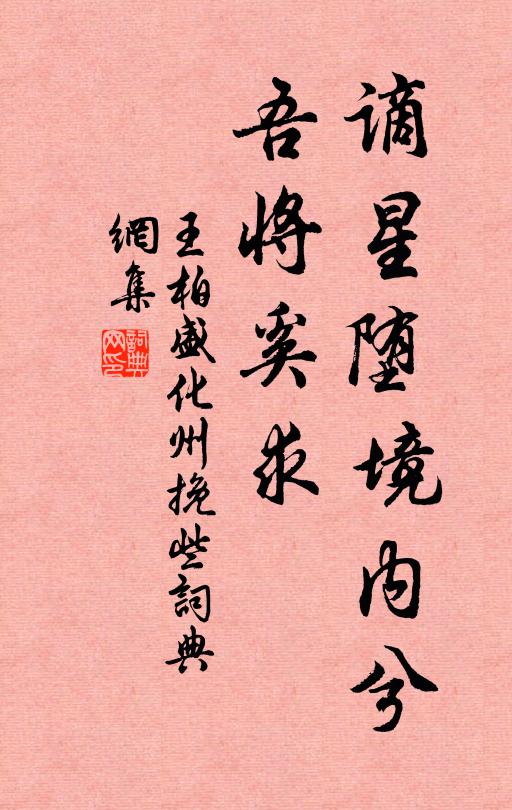 谪星堕境内兮
吾将奚求
王柏盛化州挽些詞典
網集
詞典
网印